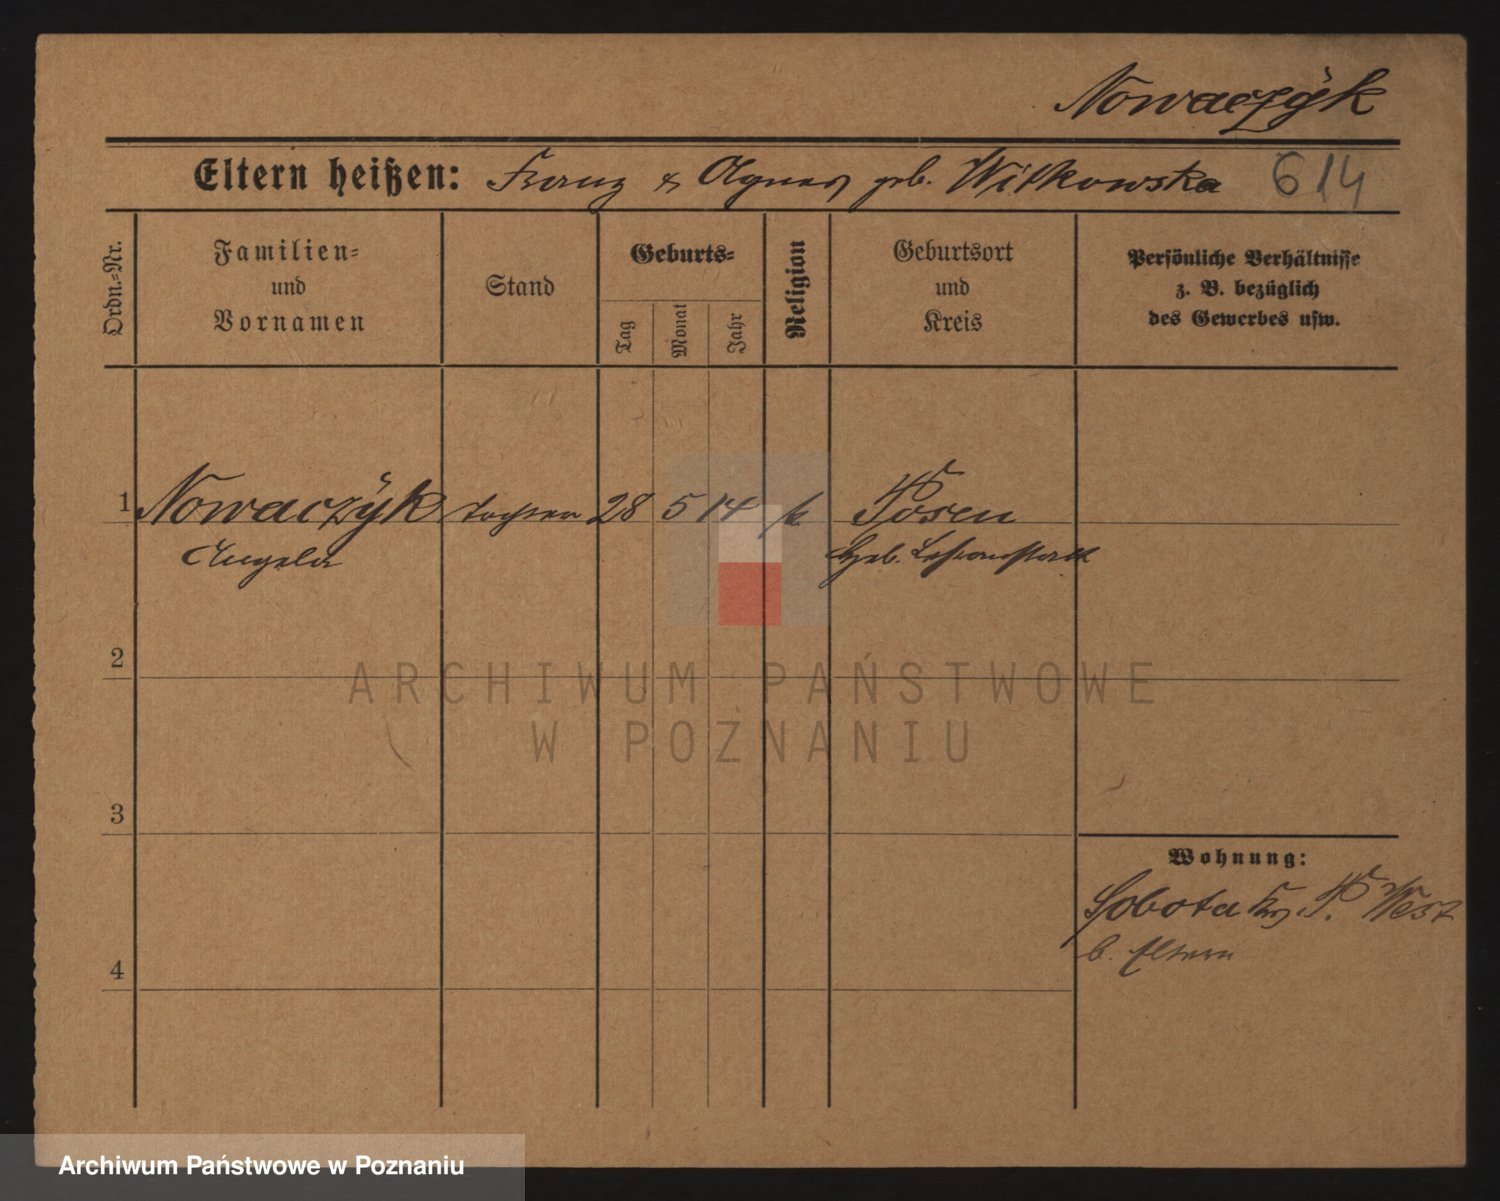 Nowaczyk
Eltern heißen: Franz & Agnes geb. Witkowska 614
Ordn.=Nr.
Familien=
und
Vornamen
Stand
Geburts=
Tag
Monat
Jahr
Religion
Geburtsort
und
Kreis
Persönliche Verhältnisse
z. B. bezüglich
des Gewerbes usw.
1 Nowaczÿk Tochter 28 5 14 k Posen
Angela Heb. Lehranstalt
2
3
4
Wohnung:
Sobota Krs P. West
b. Eltern
ARCHIWUM PAŃSTWOWE
W POZNANIU
Archiwum Państwowe w Poznaniu